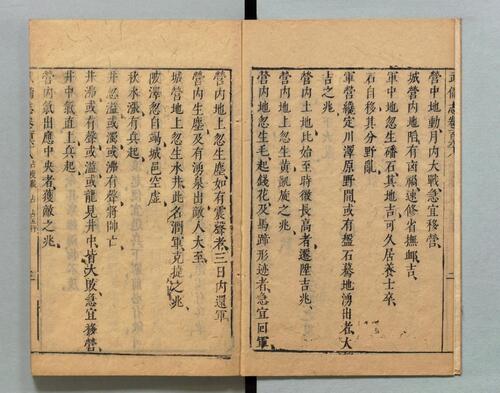 武備志卷一百六
營中地動月內大戰急宜移營
城營內地陷有凶禍速修省撫卹吉
軍中地忽生磻石其地吉可久居養士卒
石自移其分野亂
軍營纔定川澤原野間或有盤石墓地湧出者大
吉之兆
營內土地比始至時後長高者遷陞吉兆
營內地上忽生黃氈旋之兆
營內地忽生毛起錢花及馬蹄形迹者急宜回軍
營內地上忽生塵如有震聲者三日內還軍
營內生塵及有湧泉出敵人大至
城營地上忽生水井此名潤軍克捷之兆
陂澤忽自竭城邑空虛
秋水漲有兵起
井忽溢或漲或沸有聲將帥亡
井沸或有聲或溢或龍見井中皆大敗急宜移營
井中氣直上兵起
營內氣出應中央者獲敵之兆